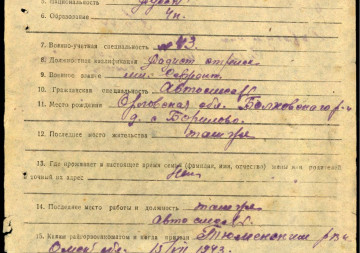 5. Национальность русск
6. Образование 4 кл.
7. Военно-учетная специальность № 43
8. Должностная квалификация Радист отделе
9. Военное звание мл. сержант
10. Гражданская специальность Автослес
11. Место рождения Орловская обл Болховского р-н
д. с Борилово
12. Последнее место жительства там же
13. Где проживает в настоящее время семья (фамилия, имя, отчество) жены или родителей
и точный их адрес Нет
14. Последнее место работы и должность там же
Автослес
15. Каким райгорвоенкоматом и когда призван Тюменским рвк
Омской обл. 15/VII 1943